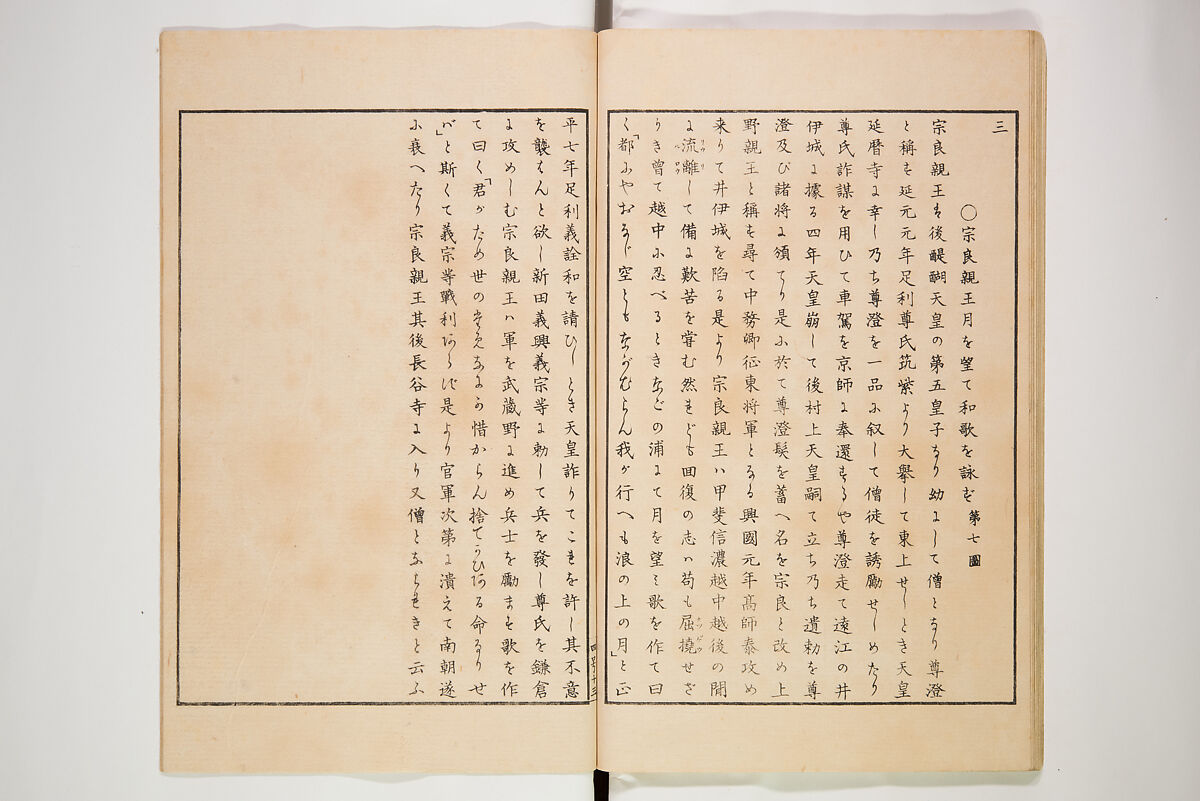 三
〇宗良親王月を望て和歌を詠ず 第七圖
宗良親王は後醍醐天皇の第五皇子なり幼にして僧となり尊澄
と稱す延元元年足利尊氏筑紫より大擧して東上せしとき天皇
延暦寺に幸し乃ち尊澄を一品に叙して僧徒を誘勵せしめたり
尊氏詐謀を用ひて車駕を京師に奉還するや尊澄走て遠江の井
伊城に據る四年天皇崩して後村上天皇嗣て立ち乃ち遺勅を尊
澄及び諸將に頒てり是に於て尊澄髮を蓄へ名を宗良と改め上
野親王と稱す尋て中務卿征東将軍となる興國元年高師泰攻め
来りて井伊城を陷る是より宗良親王ハ甲斐信濃越中越後の間
に流離して備に歎苦を嘗む然れども回復の志ハ苟も屈撓せざ
りき曾て越中に忍べるときなごの浦にて月を望ミ歌を作て曰
く「都にやおなじ空ともながむらん我が行へも浪の上の月」と正
平七年足利義詮和を請ひしとき天皇詐りてこれを許し其不意
を襲はんと欲し新田義興義宗等に勅して兵を發し尊氏を鎌倉
に攻めしむ宗良親王ハ軍を武蔵野に進め兵士を勵ます歌を作
て曰く「君がため世のためなにか惜からん捨てかひある命なりせ
バ」と斯くて義宗等戰利あらず是より官軍次第に潰えて南朝遂
に衰へたり宗良親王其後長谷寺に入り又僧となられきと云ふ
四号十三